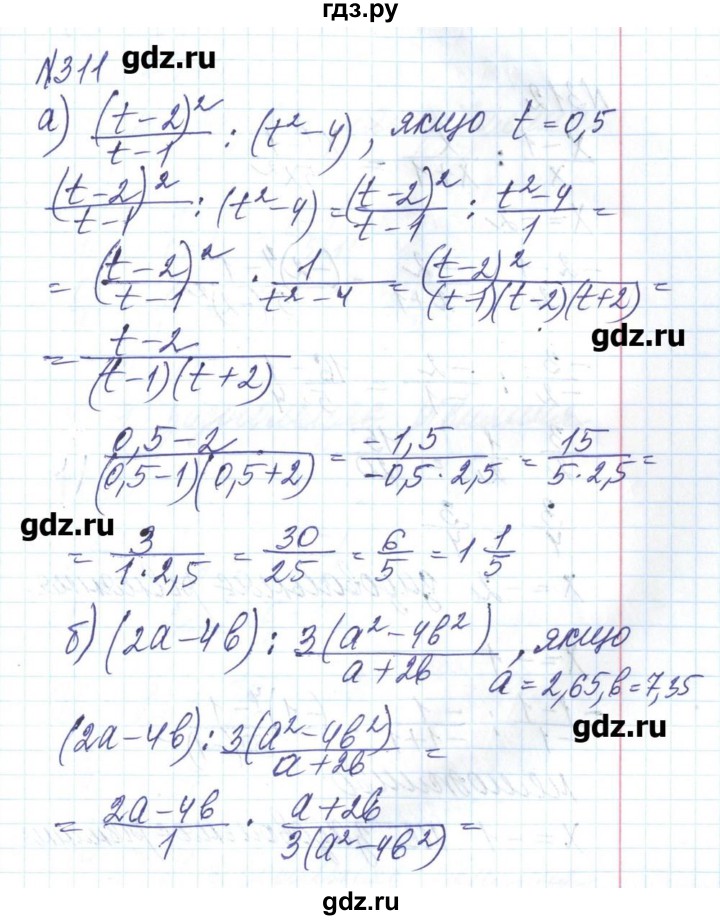 гдз.ру
№311 gdz.ru
а) (t-2)²/(t-1) : (t²-4), якщо t=0,5
(t-2)²/(t-1) : (t²-4) = (t-2)²/(t-1) : (t²-4)/1 =
= (t-2)²/(t-1) · 1/(t²-4) = (t-2)²/((t-1)(t-2)(t+2)) =
gdz.ru
= (t-2)/((t-1)(t+2))
(0,5-2)/((0,5-1)(0,5+2)) = (-1,5)/(-0,5·2,5) = 15/(5·2,5) =
gdz.ru
= 3/(1·2,5) = 30/25 = 6/5 = 1 1/5
б) (2a-4b) : 3(a²-4b²)/(a+2b), якщо
a=2,65, b=7,35
gdz.ru
(2a-4b) : 3(a²-4b²)/(a+2b) =
= (2a-4b)/1 · (a+2b)/(3(a²-4b²)) =
gdz.ru